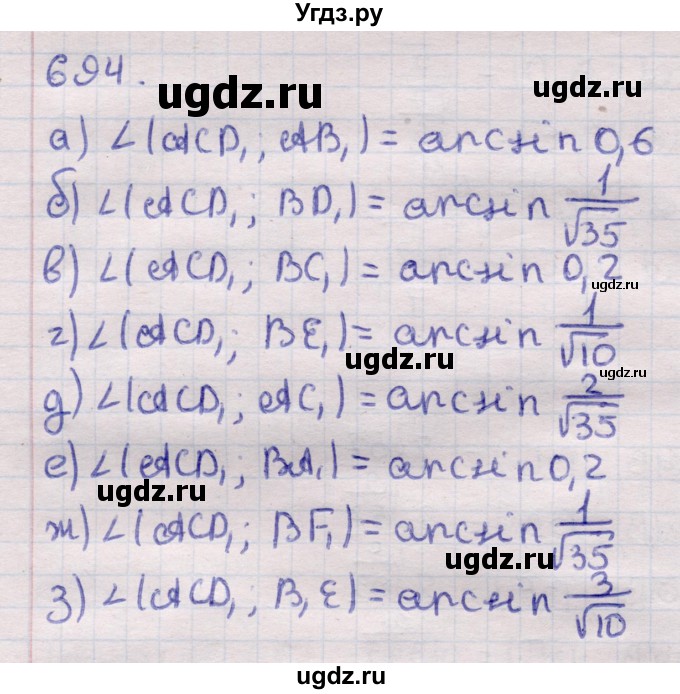 Угдз.ру
694.
ugdz.ru
а) ∠(ACD₁; AB₁) = arcsin 0,6
б) ∠(ACD₁; BD₁) = arcsin 1/√35
ugdz.ru
в) ∠(ACD₁; BC₁) = arcsin 0,2
ugdz.ru
г) ∠(ACD₁; BE₁) = arcsin 1/√10
ugdz.ru
ugdz.ru
д) ∠(ACD₁; AC₁) = arcsin 2/√35
ugdz.ru
е) ∠(ACD₁; BA₁) = arcsin 0,2
ugdz.ru
ж) ∠(ACD₁; BF₁) = arcsin 1/√35
ugdz.ru
з) ∠(ACD₁; B₁E) = arcsin 3/√10
ugdz.ru
ugdz.ru